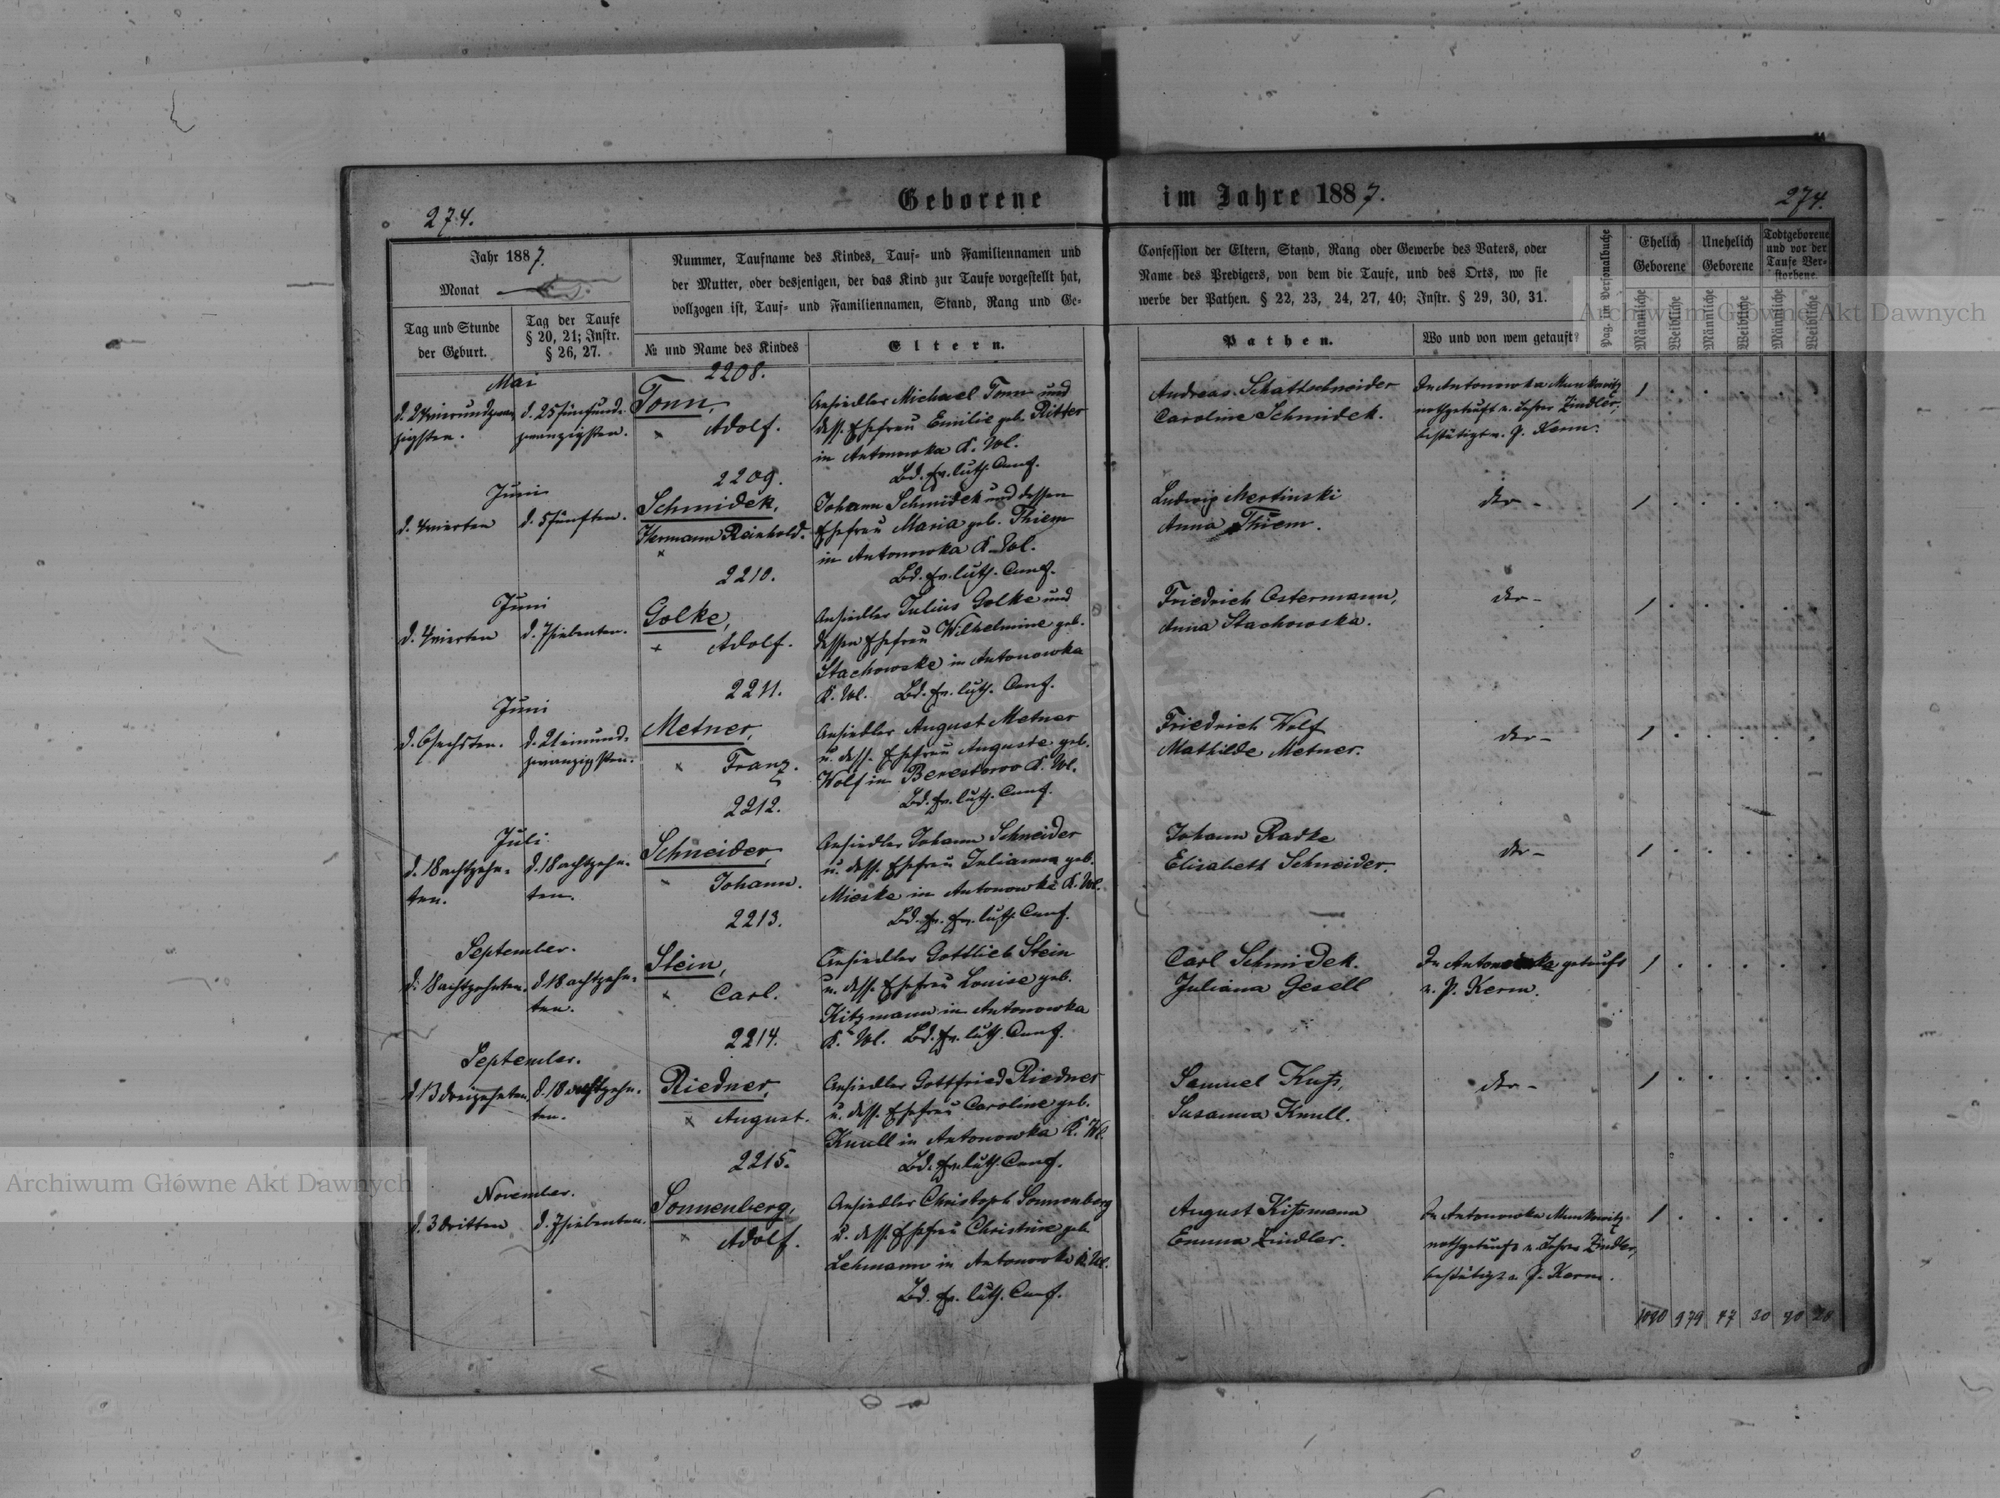 Geborene im Jahre 1887.
274.
274.
Jahr 1887.
Monat
Tag und Stunde
der Geburt.
Tag der Taufe
§ 20, 21; Instr.
§ 26, 27.
Nummer, Taufname des Kindes, Tauf- und Familiennamen und
der Mutter, oder desjenigen, der das Kind zur Taufe vorgestellt hat,
vollzogen ist, Tauf- und Familiennamen, Stand, Rang und Ge-
№ und Name des Kindes
Eltern.
Confession der Eltern, Stand, Rang oder Gewerbe des Vaters, oder
Name des Predigers, von dem die Taufe, und des Orts, wo sie
werbe der Pathen. § 22, 23, 24, 27, 40; Instr. § 29, 30, 31.
Pathen.
Wo und von wem getauft?
Pag. im Personalbuche
Ehelich
Geborene
Unehelich
Geborene
Todtgeborene
und vor der
Taufe Ver-
storbene.
Männliche
Weibliche
Männliche
Weibliche
Männliche
Weibliche
Mai
d. 24 vierundzwan-
zigsten.
d. 25 fünfund-
zwanzigsten.
2208.
Tonn,
Adolf.
Ansiedler Michael Tonn und
dess. Ehefrau Emilie geb. Ritter
in Antonowka K. Wl.
Bd. ev. luth. Conf.
Andreas Schattschneider
Caroline Schmidek.
In Antonowka Munkowitz
nothgetauft v. Lehrer Zindler,
bestätigt v. P. Kerm.
1 . . . . .
Juni
d. 4 vierten
d. 5 fünften.
2209.
Schmidek,
Hermann Reinhold.
Johann Schmidek und dessen
Ehefrau Maria geb. Thiem
in Antonowka K. Wl.
Bd. ev. luth. Conf.
Ludwig Mertinski
Anna Thiem.
der -
1 . . . . .
Juni
d. 4 vierten
d. 7 siebenten.
2210.
Golke,
Adolf.
Ansiedler Julius Golke und
dessen Ehefrau Wilhelmine geb.
Stachowske in Antonowka
K. Wl. Bd. ev. luth. Conf.
Friedrich Ostermann,
Anna Stachowska.
der -
1 . . . . .
Juni
d. 6 sechsten.
d. 21 einund-
zwanzigsten.
2211.
Metner,
Franz.
Ansiedler August Metner
u. dess. Ehefrau Auguste geb.
Wolf in Berestowo K. Wl.
Bd. ev. luth. Conf.
Friedrich Wolf
Mathilde Metner.
der -
1 . . . . .
Juli
d. 18 achtzehn-
ten.
d. 18 achtzehn-
ten.
2212.
Schneider,
Johann.
Ansiedler Johann Schneider
u. dess. Ehefrau Julianna geb.
Mieske in Antonowka K. Wl.
Bd. ev. ev. luth. Conf.
Johann Radke
Elisabeth Schneider.
der -
1 . . . . .
September.
d. 18 achtzehnten.
d. 18 achtzehn-
ten.
2213.
Stein,
Carl.
Ansiedler Gottlieb Stein
u. dess. Ehefrau Louise geb.
Kitzmann in Antonowka
K. Wl. Bd. ev. luth. Conf.
Carl Schmidek.
Juliana Gesell
In Antonowka getauft
v. P. Kerm.
1 . . . . .
September.
d. 13 dreizehnten.
d. 18 achtzehn-
ten.
2214.
Riedner,
August.
Ansiedler Gottfried Riedner
u. dess. Ehefrau Caroline geb.
Knull in Antonowka K. Wl.
Bd. ev. luth. Conf.
Samuel
Susanna Knull.
der -
1 . . . . .
November.
d. 3 dritten
d. 7 siebenten.
2215.
Sonnenberg,
Adolf.
Ansiedler Christoph Sonnenberg
u. dess. Ehefrau Christine geb.
Lehmann in Antonowka K. Wl.
Bd. ev. luth. Conf.
August Kitzmann
Emma Zindler.
In Antonowka Munkowitz
nothgetauft v. Lehrer Zindler,
bestätigt v. P. Kerm.
1 . . . . .
979 47 30 20
Archiwum Główne Akt Dawnych
Archiwum Główne Akt Dawnych